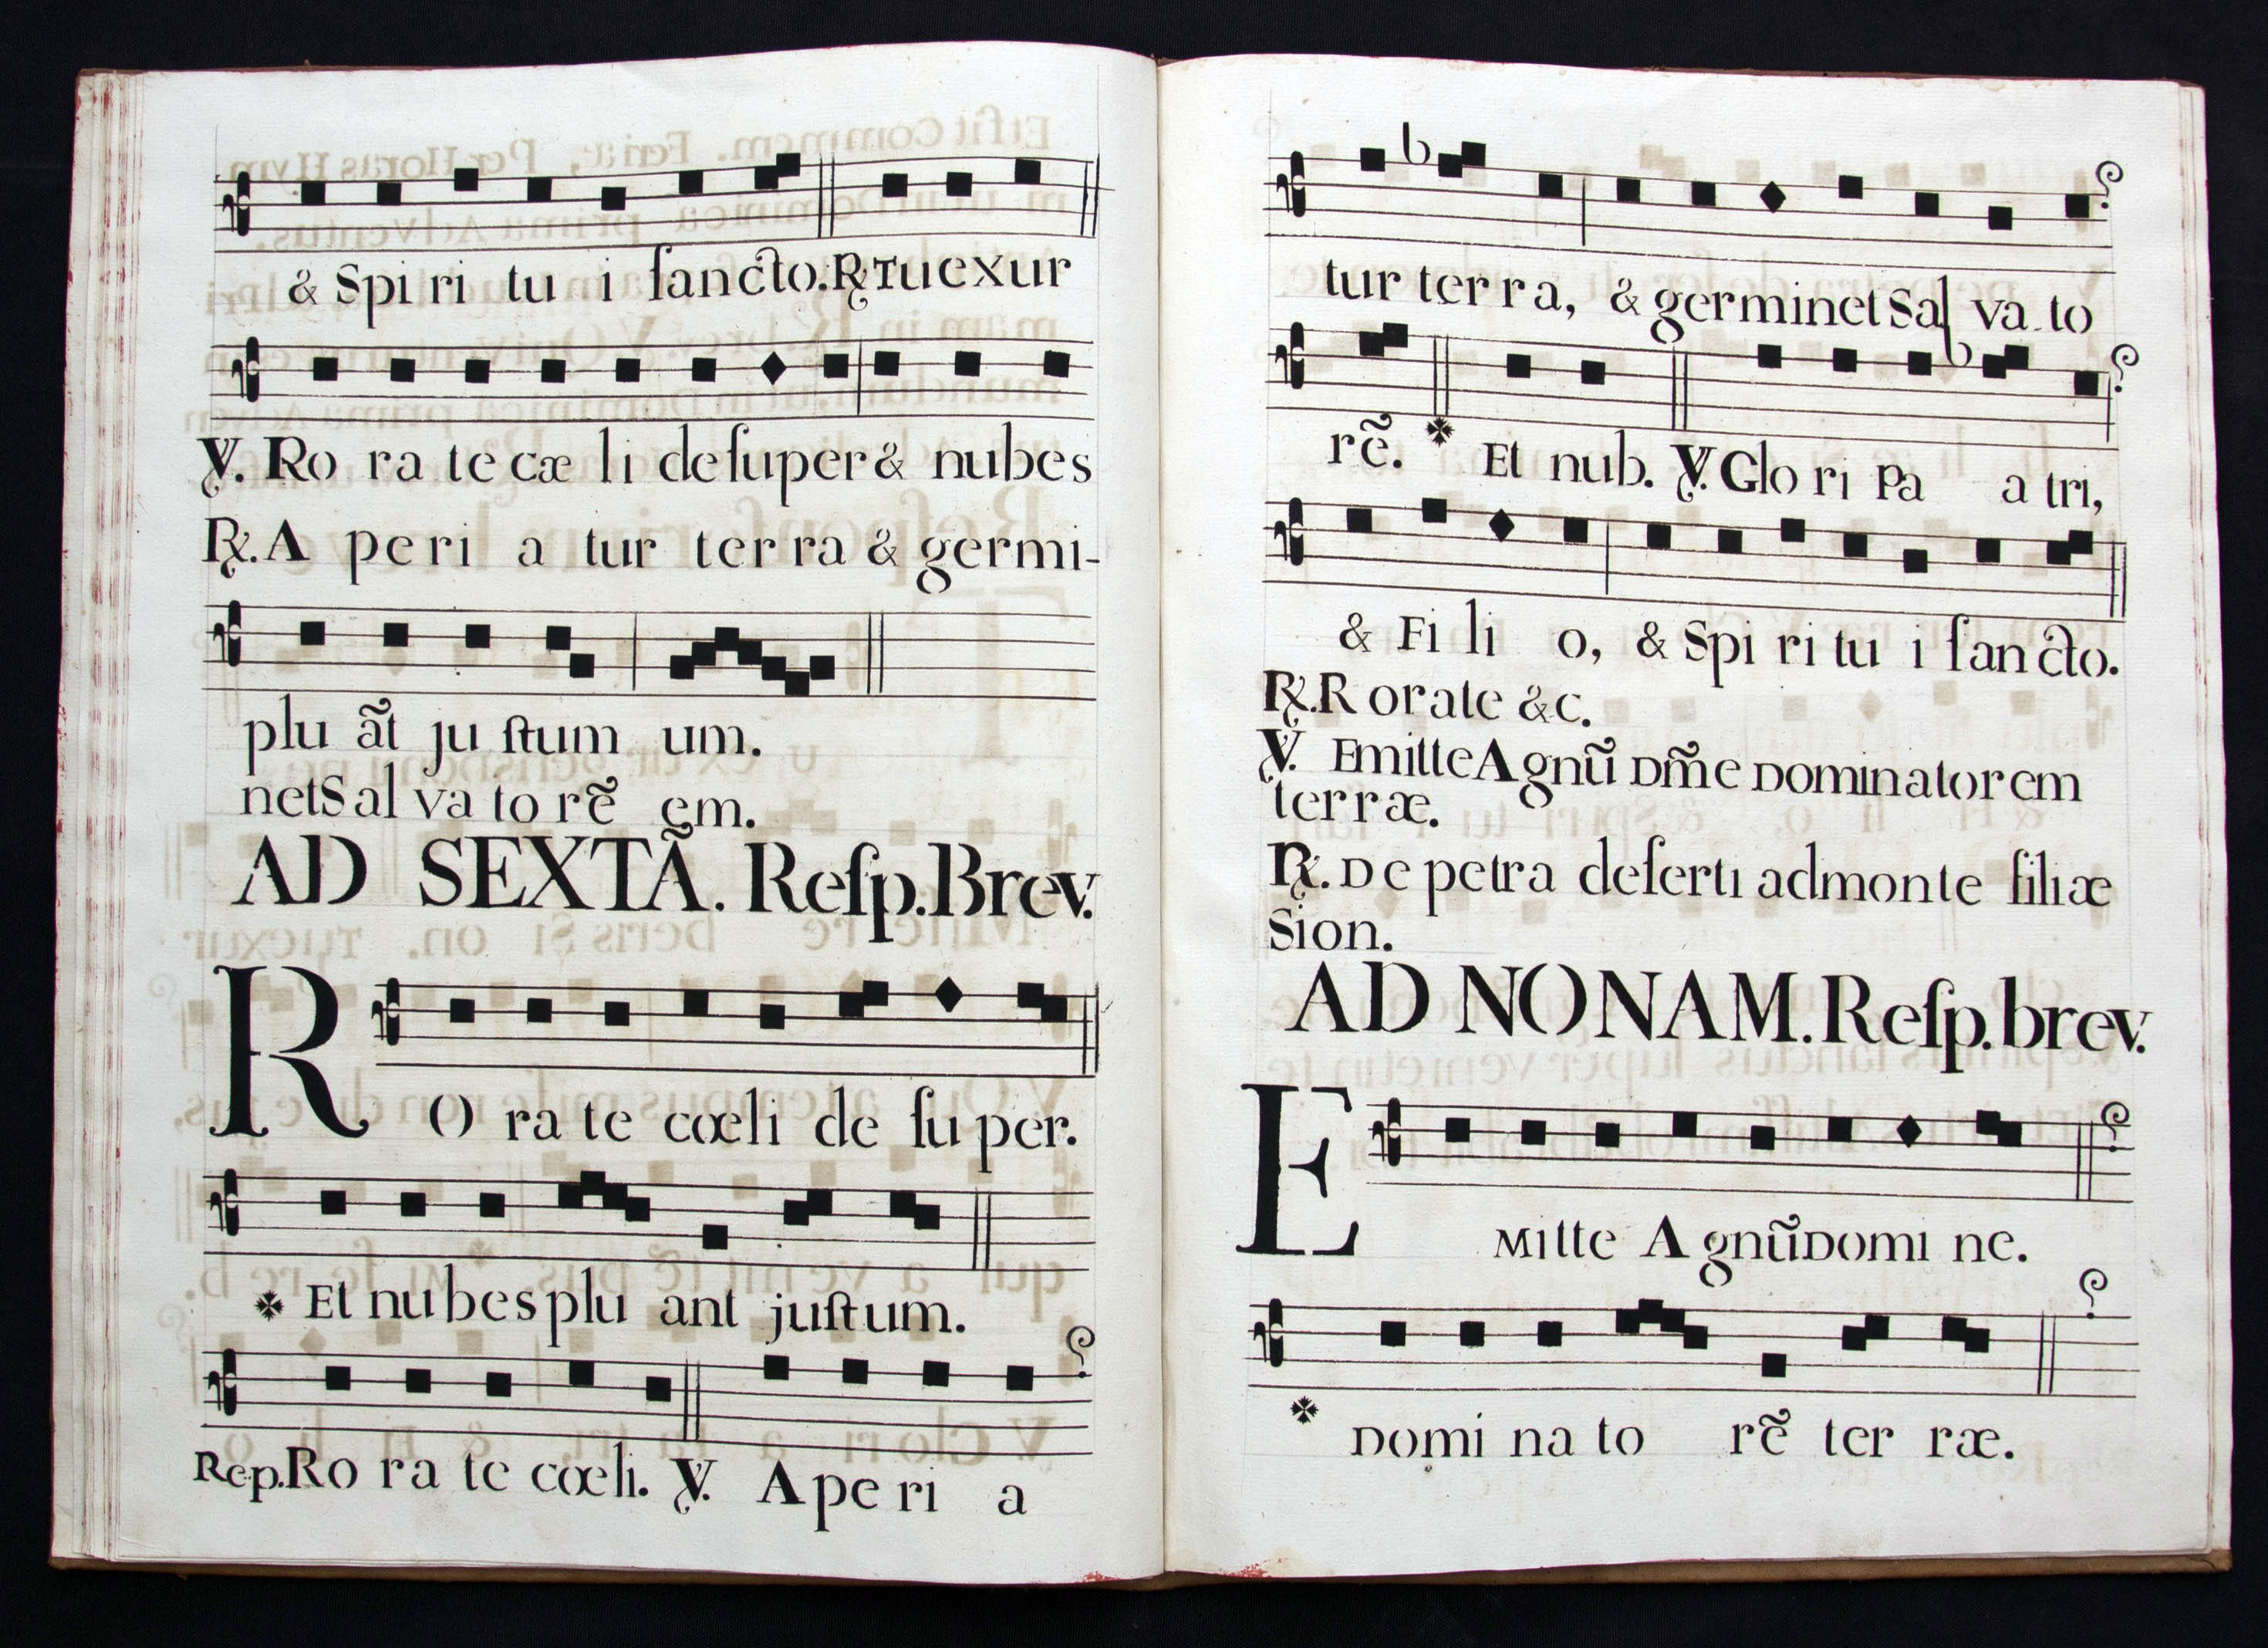 & Spi ri tu i ſancto. ℟ Tu exur
℣. Ro ra te cæ li deſuper & nubes
℟. A peri a tur terra & germi-
plu ãt ju ſtum um.
netSal va to rẽ em.
AD SEXTÃ. Reſp. Brev.
RO ra te cœli de ſuper.
✣ Et nubes plu ant juſtum.
Rep. Ro ra te cœli. ℣. Aperi a
tur terra, & germinet Sal va to
rẽ. ✣ Et nub. ℣. Glo ri Pa a tri,
& Fi li o, & Spi ri tu i ſancto.
℟. Rorate &c.
℣. Emitte Agnũ Dm̃e Dominatorem
terræ.
℟. De petra deſerti ad monte filiæ
Sion.
AD NONAM. Reſp. brev.
EMitte Agnũ Domi ne.
✣ Domi na to rẽ ter ræ.